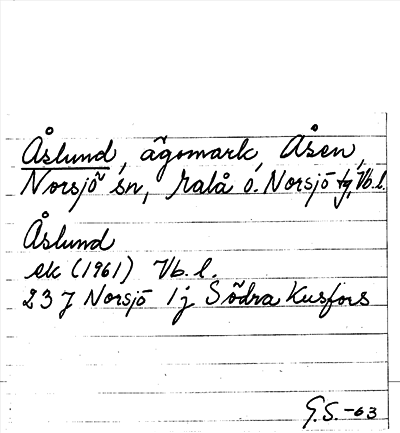 Åslund, ägomark, Åsen,
Norsjö sn, Malå o. Norsjö tg, Vb.l.
Åslund
ek (1961) Vb.l.
23 J Norsjö 1j Södra Kusfors
G.S.-63